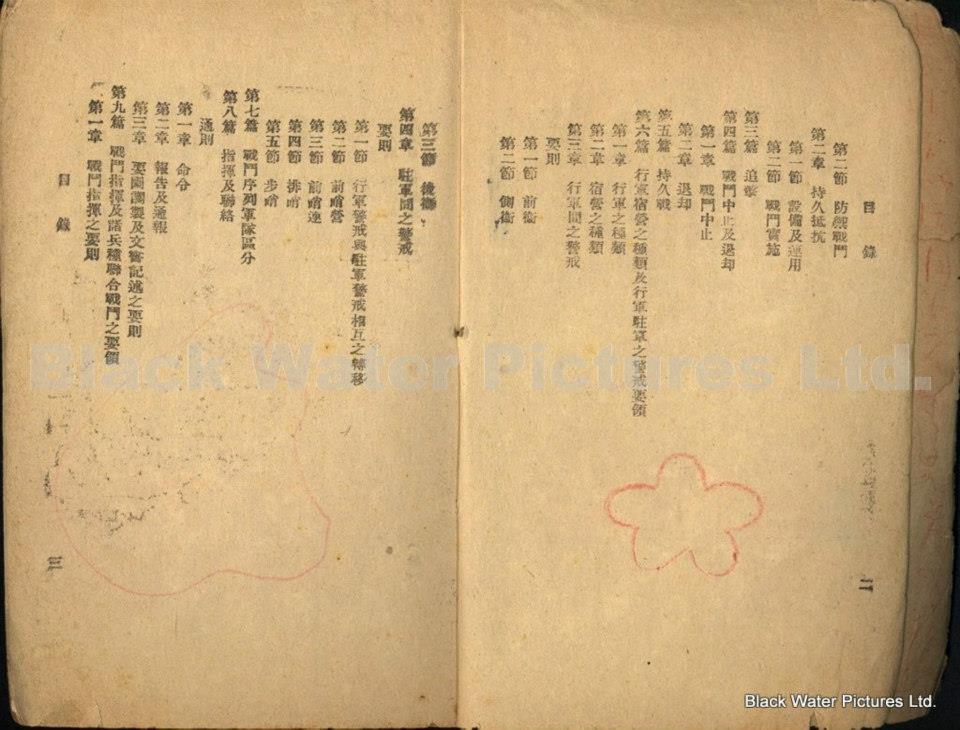 目錄
第二節 防禦戰鬥
第二章 持久抵抗
第一節 設備及運用
第二節 戰鬥實施
第三篇 追擊
第四篇 戰鬥中止及退却
第一章 戰鬥中止
第二章 退却
第五篇 持久戰
第六篇 行軍宿營之種類及行軍駐軍之警戒要領
第一章 行軍之種類
第二章 宿營之種類
第三章 行軍間之警戒
要則
第一節 前衛
第二節 側衛
二
第三節 後衛
第四章 駐軍間之警戒
要則
第一節 行軍警戒與駐軍警戒相互之轉移
第二節 前哨營
第三節 前哨連
第四節 排哨
第五節 步哨
第七篇 戰鬥序列軍隊區分
第八篇 指揮及聯絡
通則
第一章 命令
第二章 報告及通報
第三章 要圖調製及文書記述之要則
第九篇 戰鬥指揮及諸兵種聯合戰鬥之要領
第一章 戰鬥指揮之要則
目錄
三
Black Water Pictures Ltd.
Black Water Pictures Ltd.